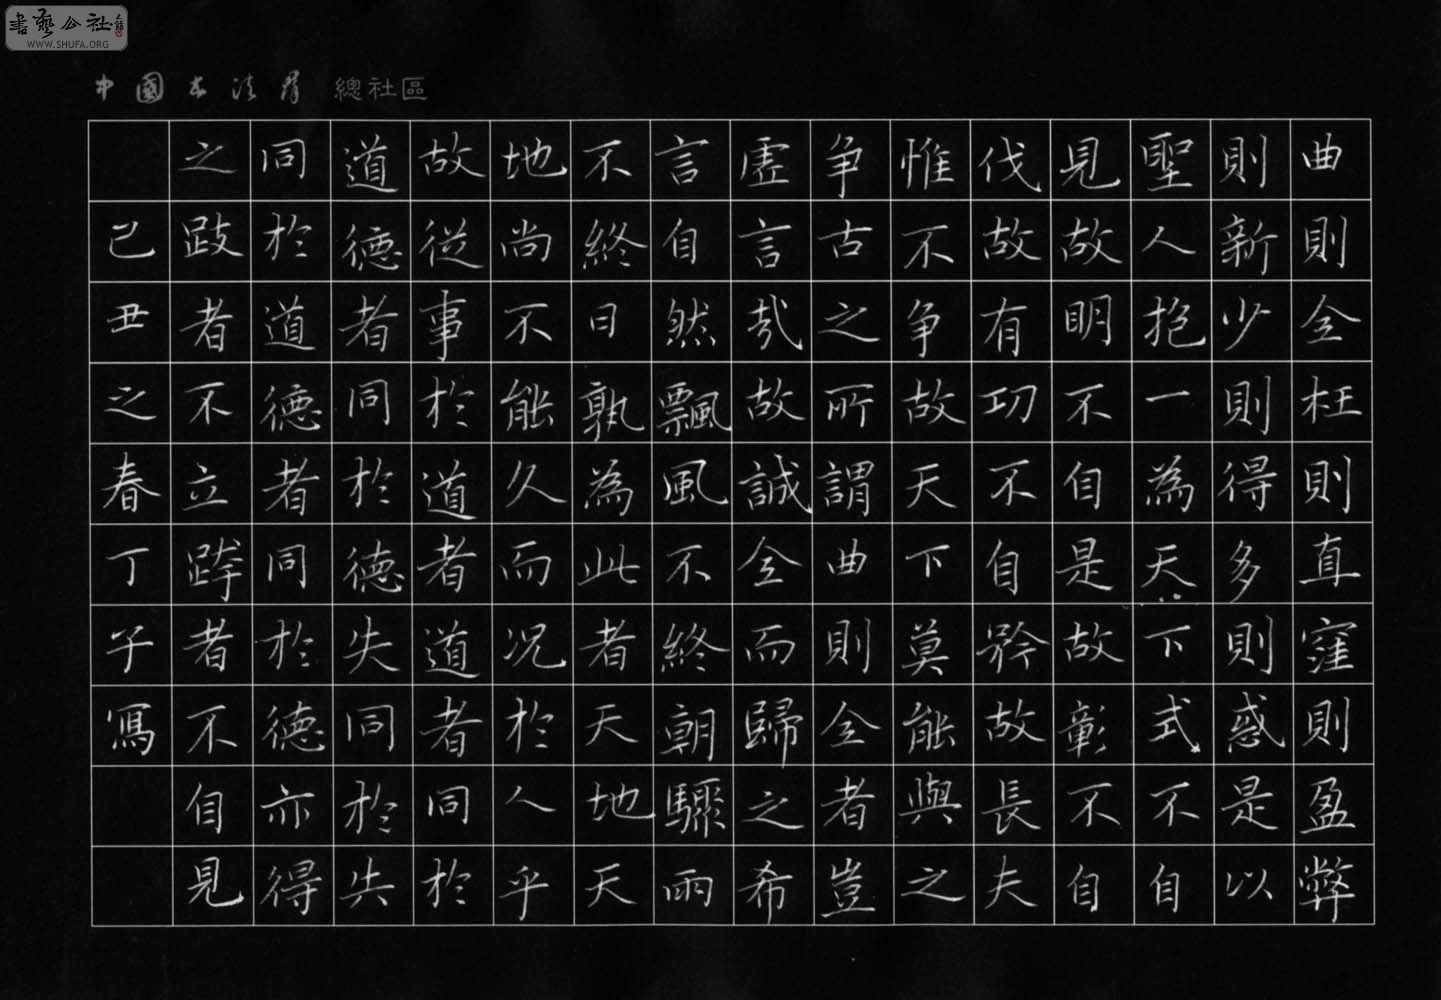 書藝公社
WWW.SHUFA.ORG
中國书法 總社區
曲則全枉則直窪則盈弊
則新少則得多則惑是以
聖人抱一為天下式不自
見故明不自是故彰不自
伐故有功不自矜故長夫
惟不争故天下莫能與之
争古之所謂曲則全者豈
虛言哉故誠全而歸之希
言自然飄風不終朝驟雨
不終日孰為此者天地天
地尚不能久而况於人乎
故從事於道者道者同於
道德者同於德失同於失
同於道德者同於德亦得
之跂者不立跨者不自見
己丑之春丁子寫